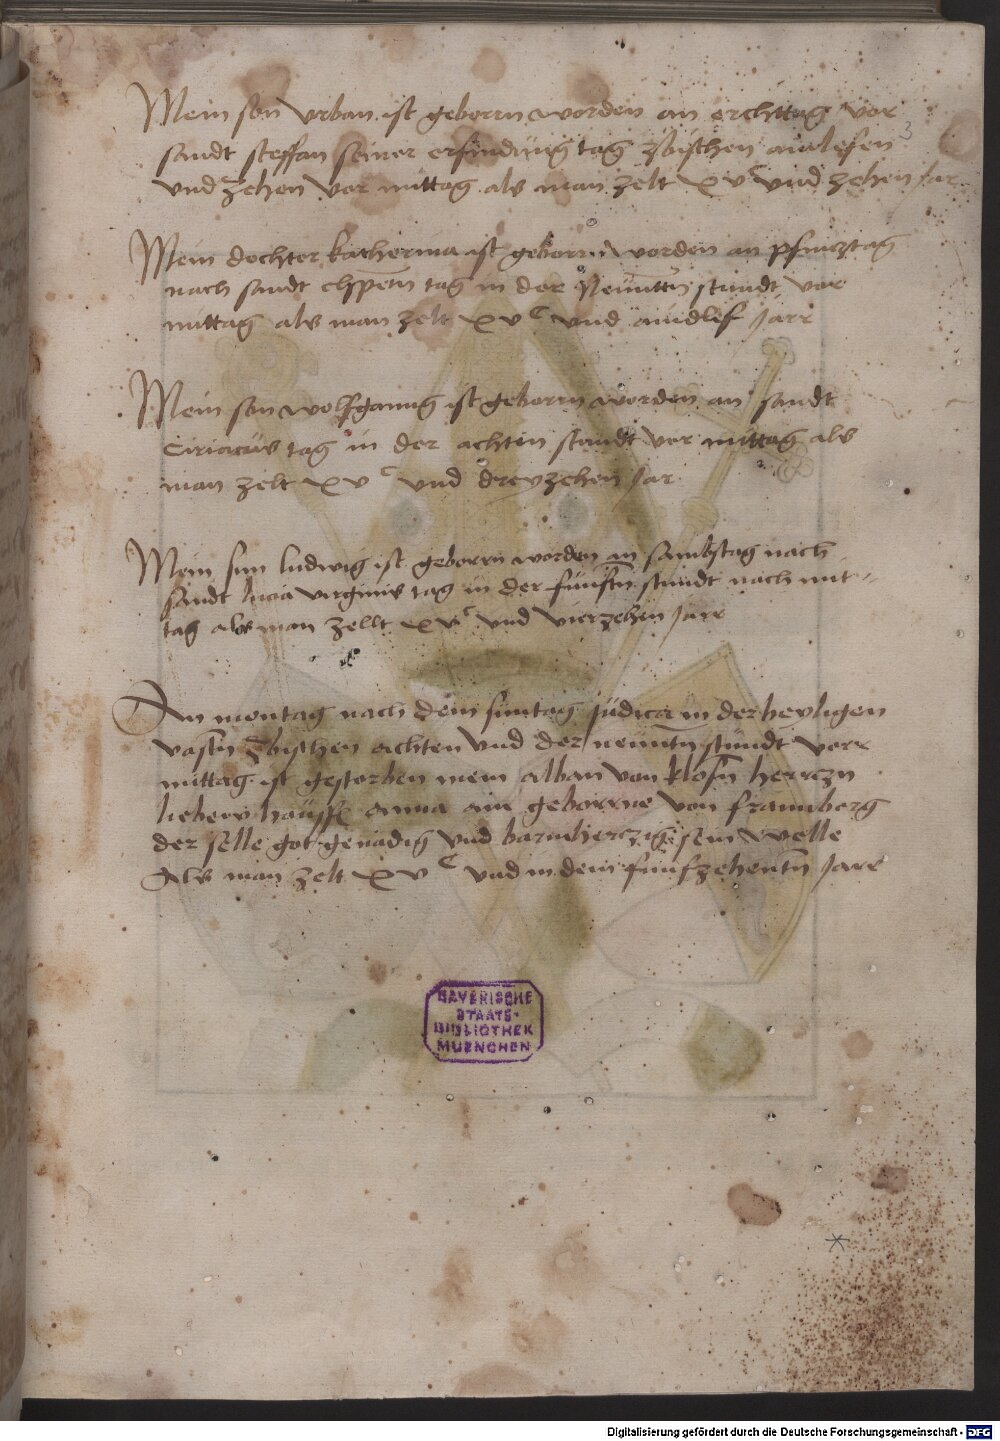 Mein son vrban ist geborrn worden an erchttag vor
3
sandt steffan seiner erfindung tag zbischen ainlefen
vnd zehen vor mittag als man zelt xvc vnd zehen Jar
Mein dochter katherina ist geborrn worden an pfincztag
nach sandt tag in der Neuntn stundt vor
mittag als man zelt xvc vnd aindlef Jarr
Mein son wolfganng ist geborrn worden an sandt
Ciriacus tag in der achtin stundt vor mittag als
man zelt xvc vnd dreyzehen Jar
Mein sun ludwig ist geborrn worden an sambstag nach
sandt lucia virginis tag in der funftn stundt nach mit-
tag als man zellt xvc vnd vierzehen Jarr
Am montag nach dem suntag Judica in der heyligen
vastn zbischen achten vnd der neuntn stundt vorr
mittag ist gestorben mein alban von klosn herczn
liebew hausfr anna ain geborrne von frawnberg
der selle got genadig vnd barmherczig sein welle
Als man zelt xvc vnd in dem funfzehentn Jarr
BAYERISCHE
STAATS-
BIBLIOTHEK
MUENCHEN
Digitalisierung gefördert durch die Deutsche Forschungsgemeinschaft - DFG